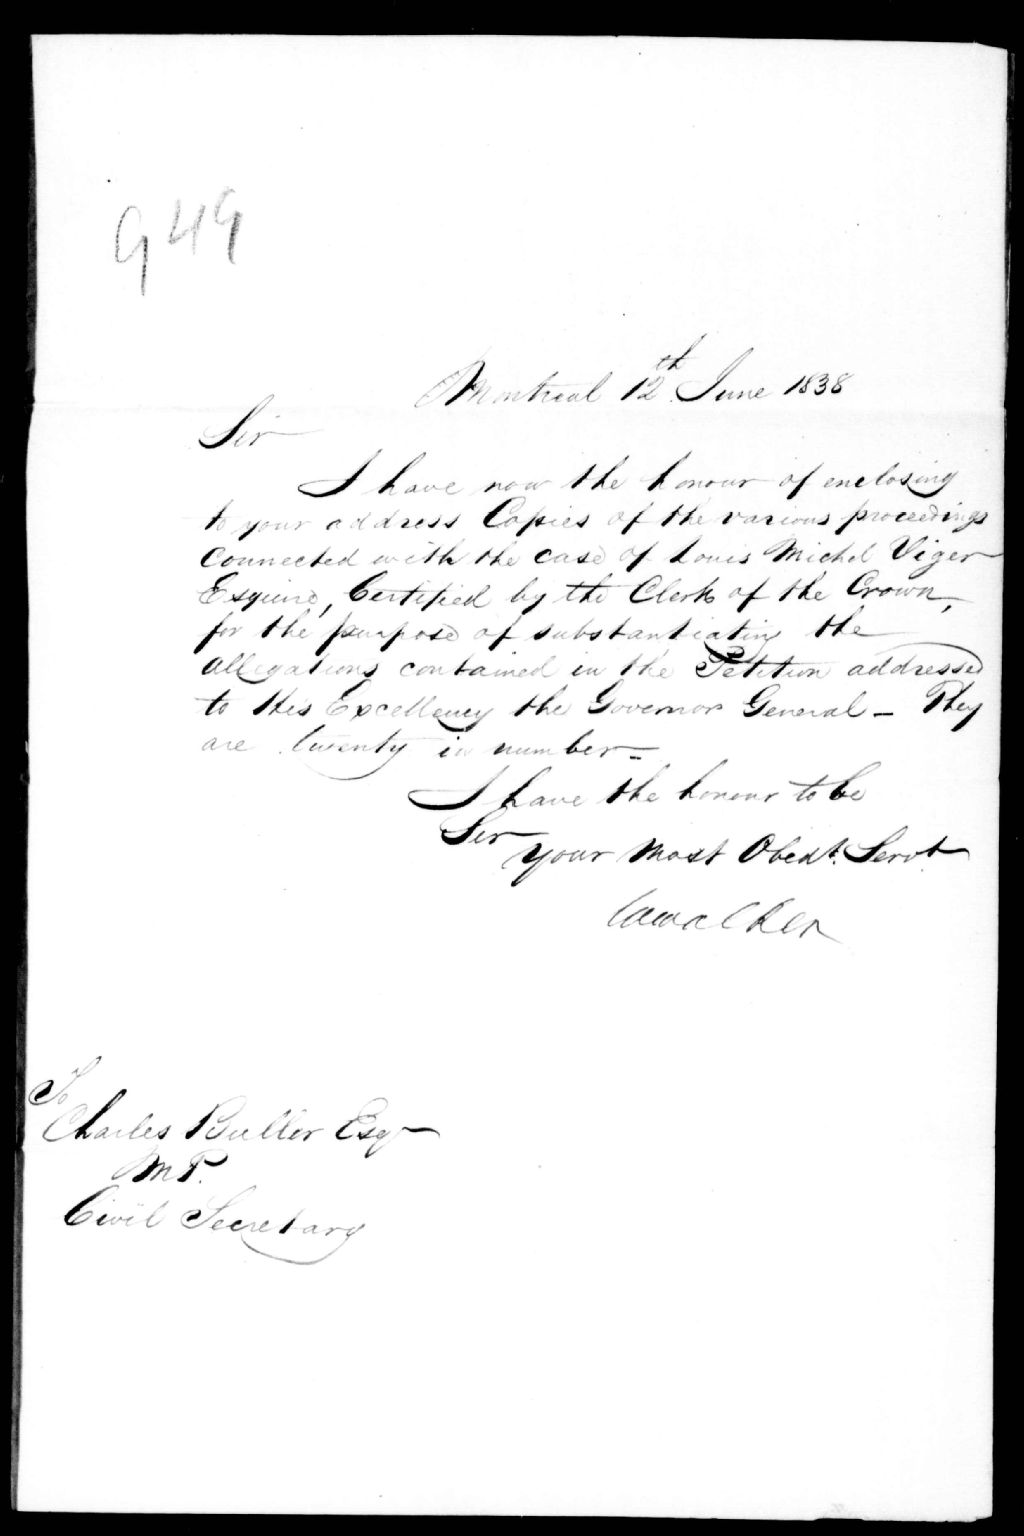 949
Montreal 12th June 1838
Sir
I have now the honour of enclosing
to your address Copies of the various proceedings
connected with the case of Louis Michel Viger
Esquire, Certified by the Clerk of the Crown,
for the purpose of substantiating the
allegations contained in the Petition addressed
to His Excellency the Governor General – They
are twenty in number –
I have the honour to be
Sir
Your Most Obedt. Servt
Walker
To
Charles Buller Esqr
M P.
Civil Secretary